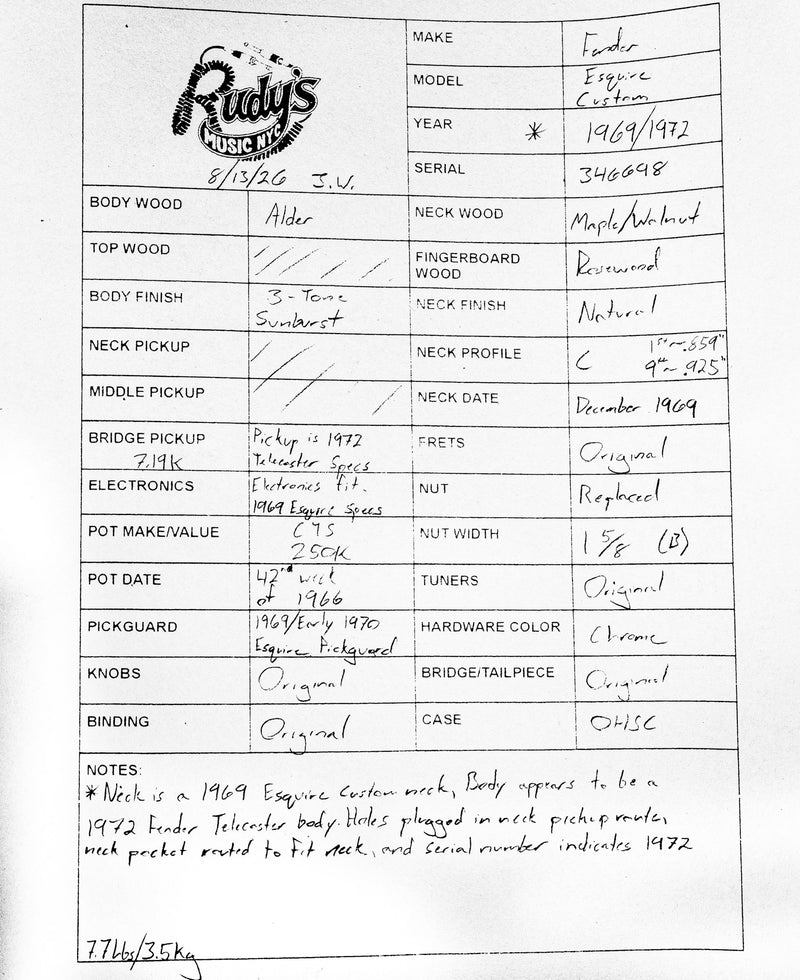 Rudy's
MUSIC NYC
8/13/26 J.W.
MAKE Fender
MODEL Esquire
Custom
YEAR * 1969/1972
SERIAL 346698
BODY WOOD Alder
NECK WOOD Maple/Walnut
TOP WOOD
FINGERBOARD
WOOD Rosewood
BODY FINISH 3-Tone
Sunburst
NECK FINISH Natural
NECK PICKUP
NECK PROFILE C 1st ~ .859"
9th ~ .925"
MIDDLE PICKUP
NECK DATE December 1969
BRIDGE PICKUP Pickup is 1972
7.19K Telecaster Specs
FRETS Original
ELECTRONICS Electronics fit
1969 Esquire Specs
NUT Replaced
POT MAKE/VALUE CTS
250K
NUT WIDTH 1 5/8 (B)
POT DATE 42nd week
of 1966
TUNERS Original
PICKGUARD 1969/Early 1970
Esquire Pickguard
HARDWARE COLOR Chrome
KNOBS Original
BRIDGE/TAILPIECE Original
BINDING Original
CASE OHSC
NOTES:
* Neck is a 1969 Esquire Custom neck, Body appears to be a
1972 Fender Telecaster body. Holes plugged in neck pickup route,
neck pocket routed to fit neck, and serial number indicates 1972
7.7Lbs/3.5Kg